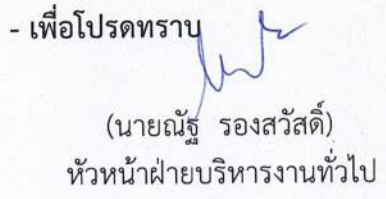 - เพื่อโปรดทราบ
(นายณัฐ รองสวัสดิ์)
หัวหน้าฝ่ายบริหารงานทั่วไป